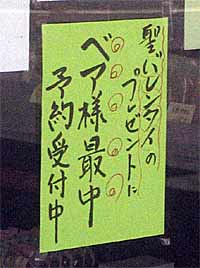 聖バレンタインの
プレゼントに
ベア様最中
予約受付中